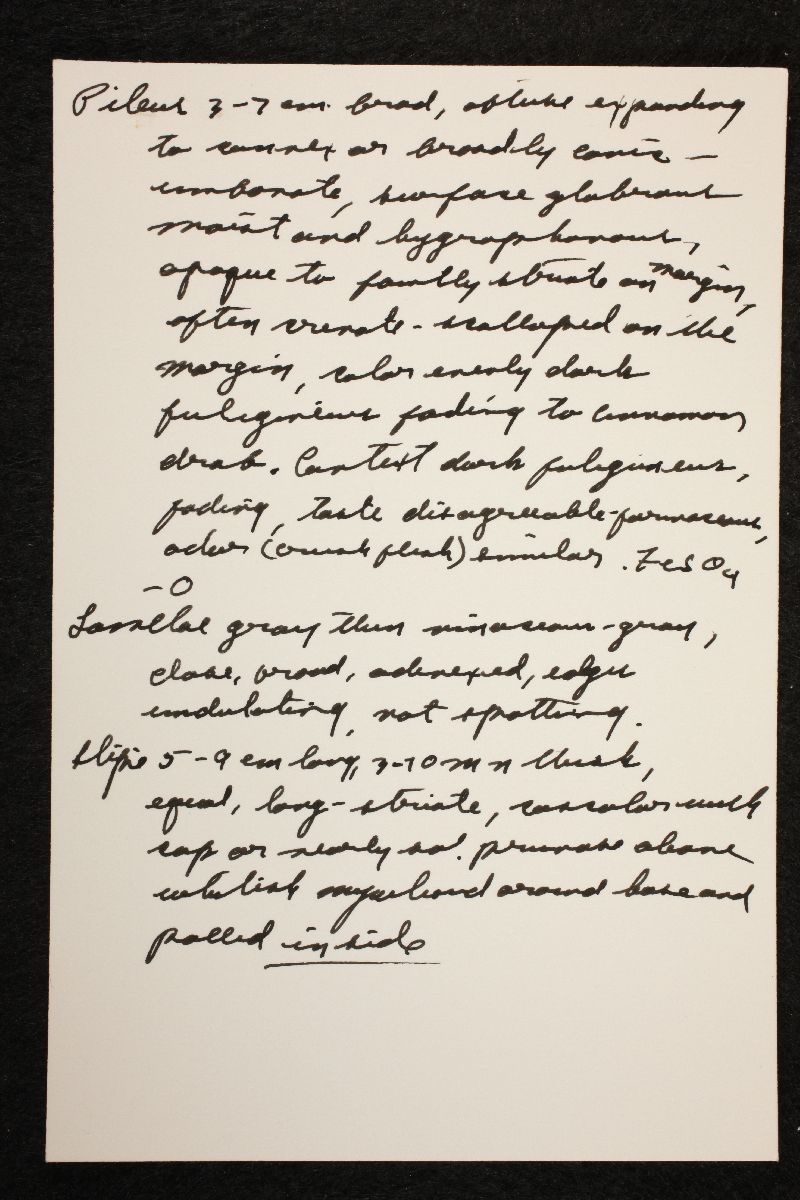 Pileus 3-7 cm broad, obtuse expanding
to convex or broadly conic-
umbonate, surface glabrous
moist and hygrophanous,
opaque to faintly striate on margin,
often crenate-scalloped on the
margin, color evenly dark
fuligineus fading to cinnamon
drab. Context dark fuligineus,
fading, taste disagreeable-farinaceous,
odor (crush flesh) similar. FeSO4
-O
Lamellae gray then vinaceous-gray,
close, broad, adnexed, edges
undulating, not spotting.
Stipe 5-9 cm long, 3-10 mm thick,
equal, long-striate, concolor with
cap or nearly so. pruinose above
whitish mycelioid around base and
pallid inside